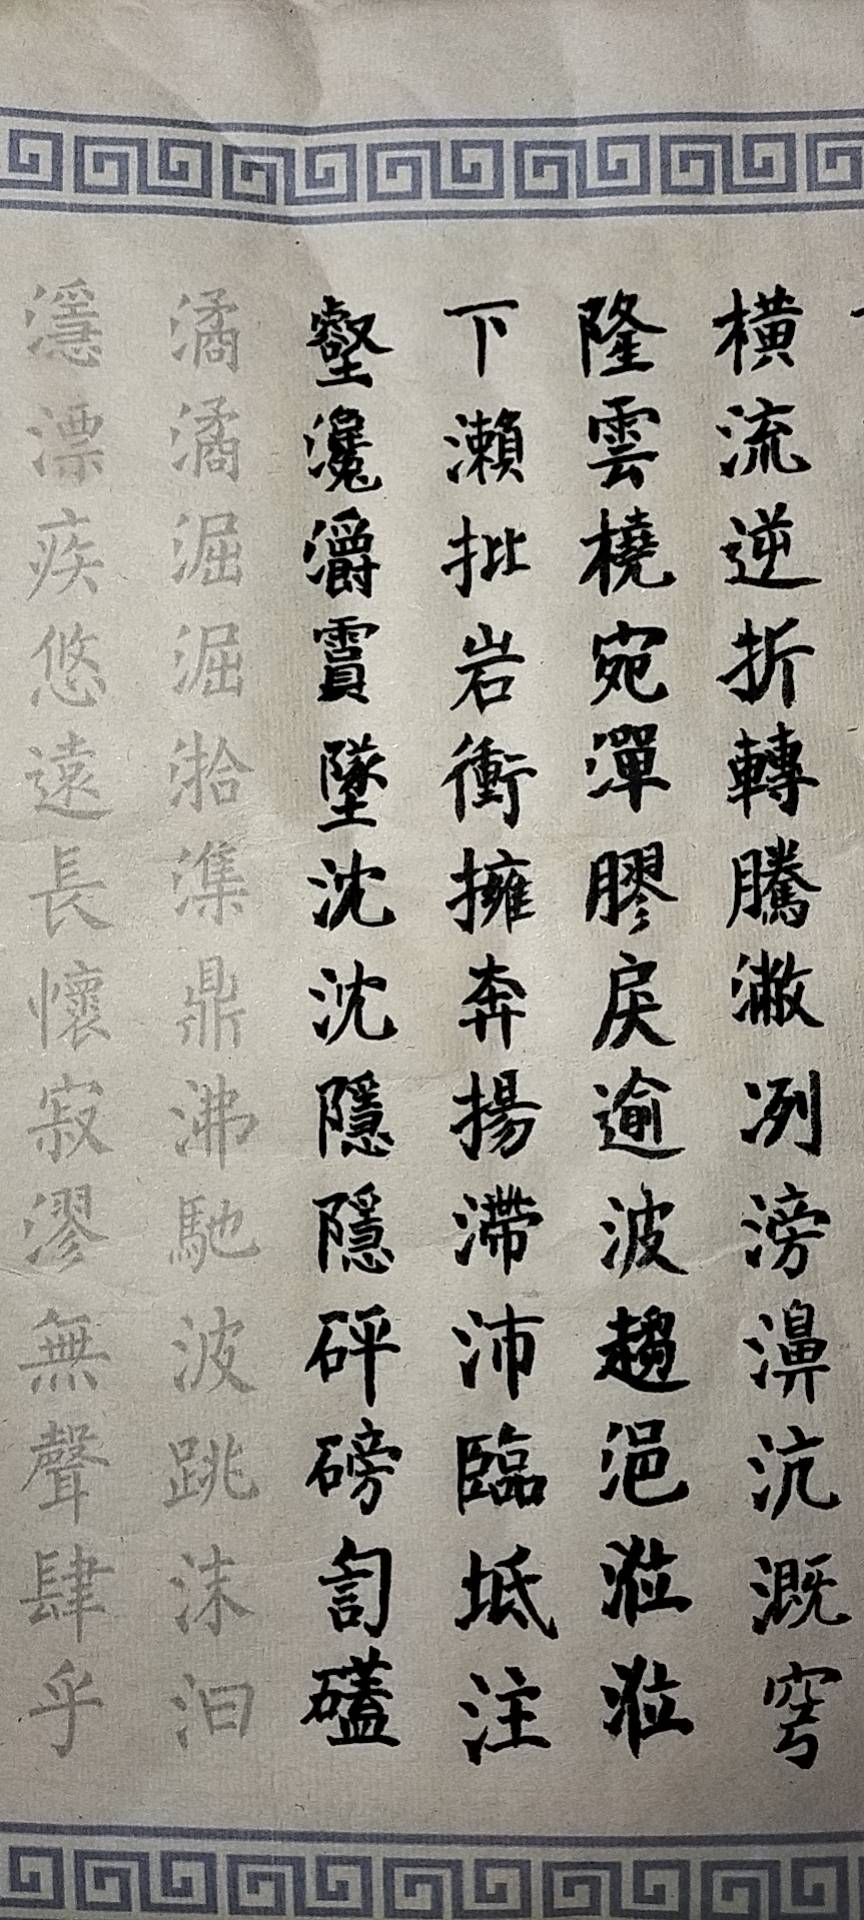 橫流逆折轉騰潎冽滂濞沆溉穹
隆雲橈宛潬膠戾逾波趨浥涖涖
下瀨批岩衝擁奔揚滯沛臨坻注
壑瀺灂霣墜沈沈隱隱砰磅訇礚
潏潏淈淈湁潗鼎沸馳波跳沫汩
濦漂疾悠遠長懷寂漻無聲肆乎